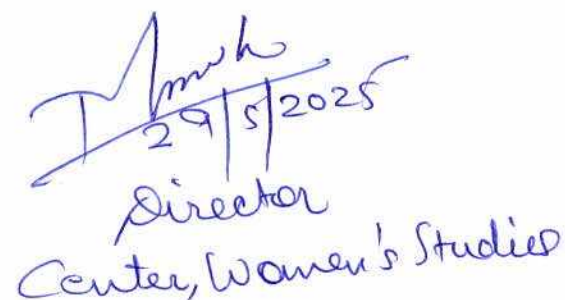 29/5/2025
Director
Center, Women's Studies